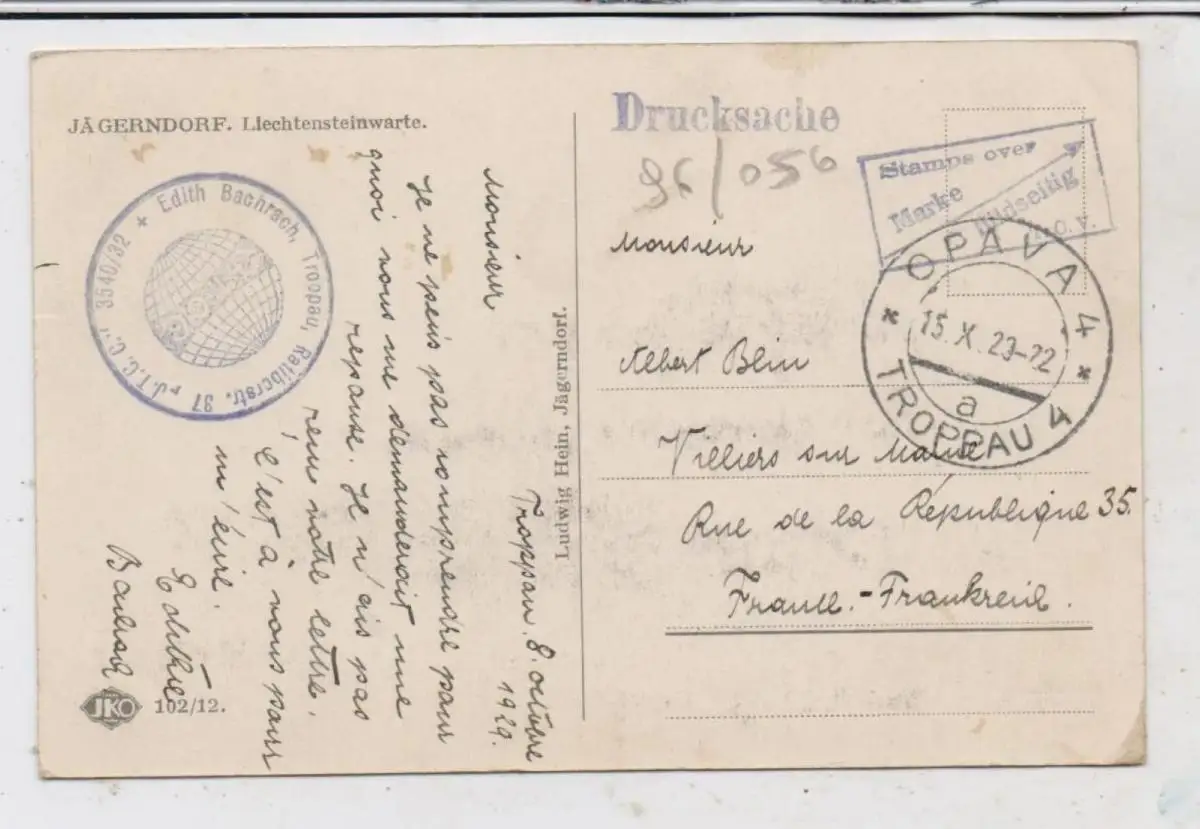 JÄGERNDORF. Liechtensteinwarte.
Edith Bachrach, Troppau, Ratiborstr. 37 "J.T.C.C." 3540/32 +
COSMOS
Monsieur
Troppau. 8. octobre
1929.
Je ne peus pas comprendre pour
quoi vous me demanderait une
repause. Je n'ais pas
réin votre lettre.
C'est à vous pour
m'écrire.
Edithe
Bachrach
JKO 102/12.
Ludwig Hein, Jägerndorf.
Drucksache
96/056
Stamps over
Marke
Bildseitig
T.O.V.
OPAVA 4
15.X.29-22
a
TROPPAU 4
Monsieur
Albert Blin
Villiers sur Marne
Rue de la République 35.
France.-Frankreich.